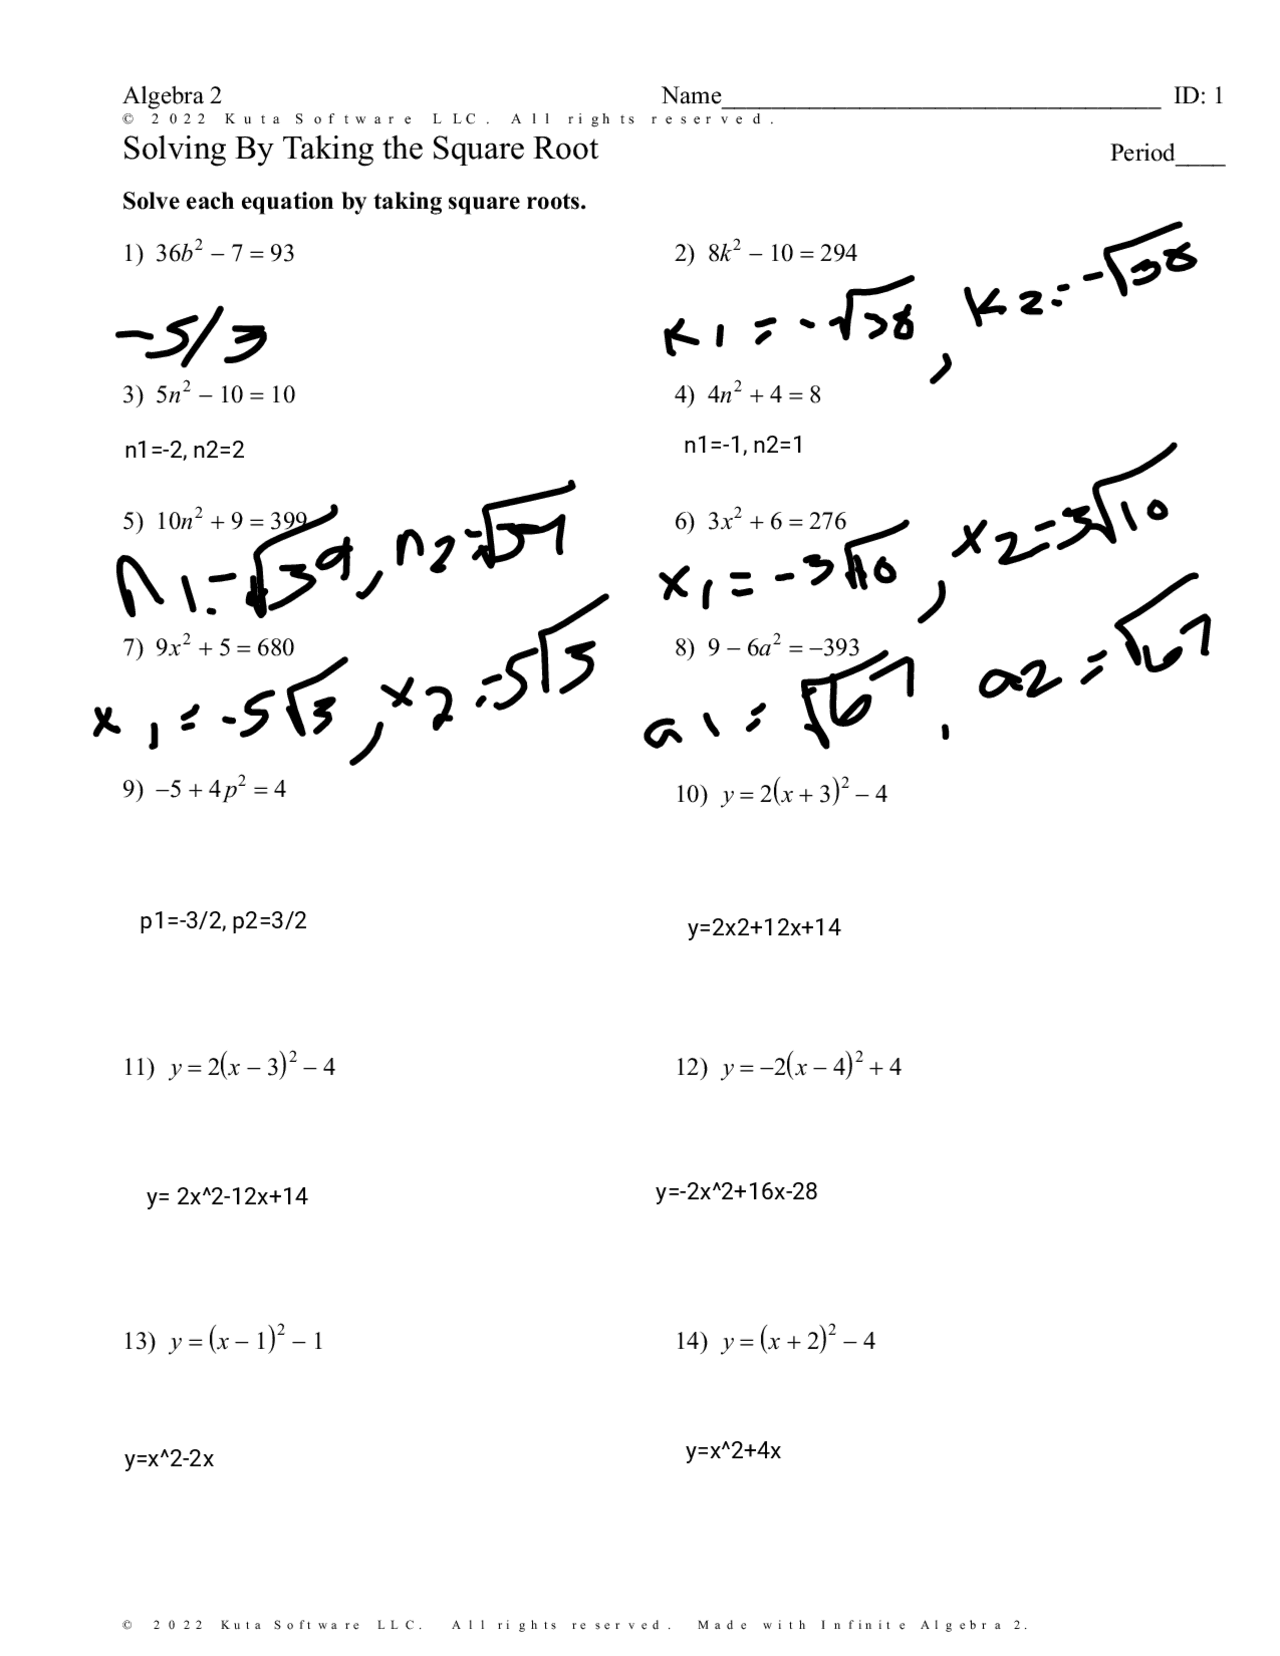 Algebra 2 Name___________________________________ ID: 1
© 2022 Kuta Software LLC. All rights reserved.
Solving By Taking the Square Root Period____
Solve each equation by taking square roots.
1) 36b² − 7 = 93 2) 8k² − 10 = 294
-5/3 K1 = -√38, K2=-√38
3) 5n² − 10 = 10 4) 4n² + 4 = 8
n1=-2, n2=2 n1=-1, n2=1
5) 10n² + 9 = 399 6) 3x² + 6 = 276
n1=-√39, n2=√39 x1 = -3√10, x2=3√10
7) 9x² + 5 = 680 8) 9 − 6a² = −393
x1=-5√3, x2=5√3 a1=√67, a2=√67
9) −5 + 4p² = 4 10) y = 2(x + 3)² − 4
p1=-3/2, p2=3/2 y=2x2+12x+14
11) y = 2(x − 3)² − 4 12) y = −2(x − 4)² + 4
y= 2x^2-12x+14 y=-2x^2+16x-28
13) y = (x − 1)² − 1 14) y = (x + 2)² − 4
y=x^2-2x y=x^2+4x
© 2022 Kuta Software LLC. All rights reserved. Made with Infinite Algebra 2.